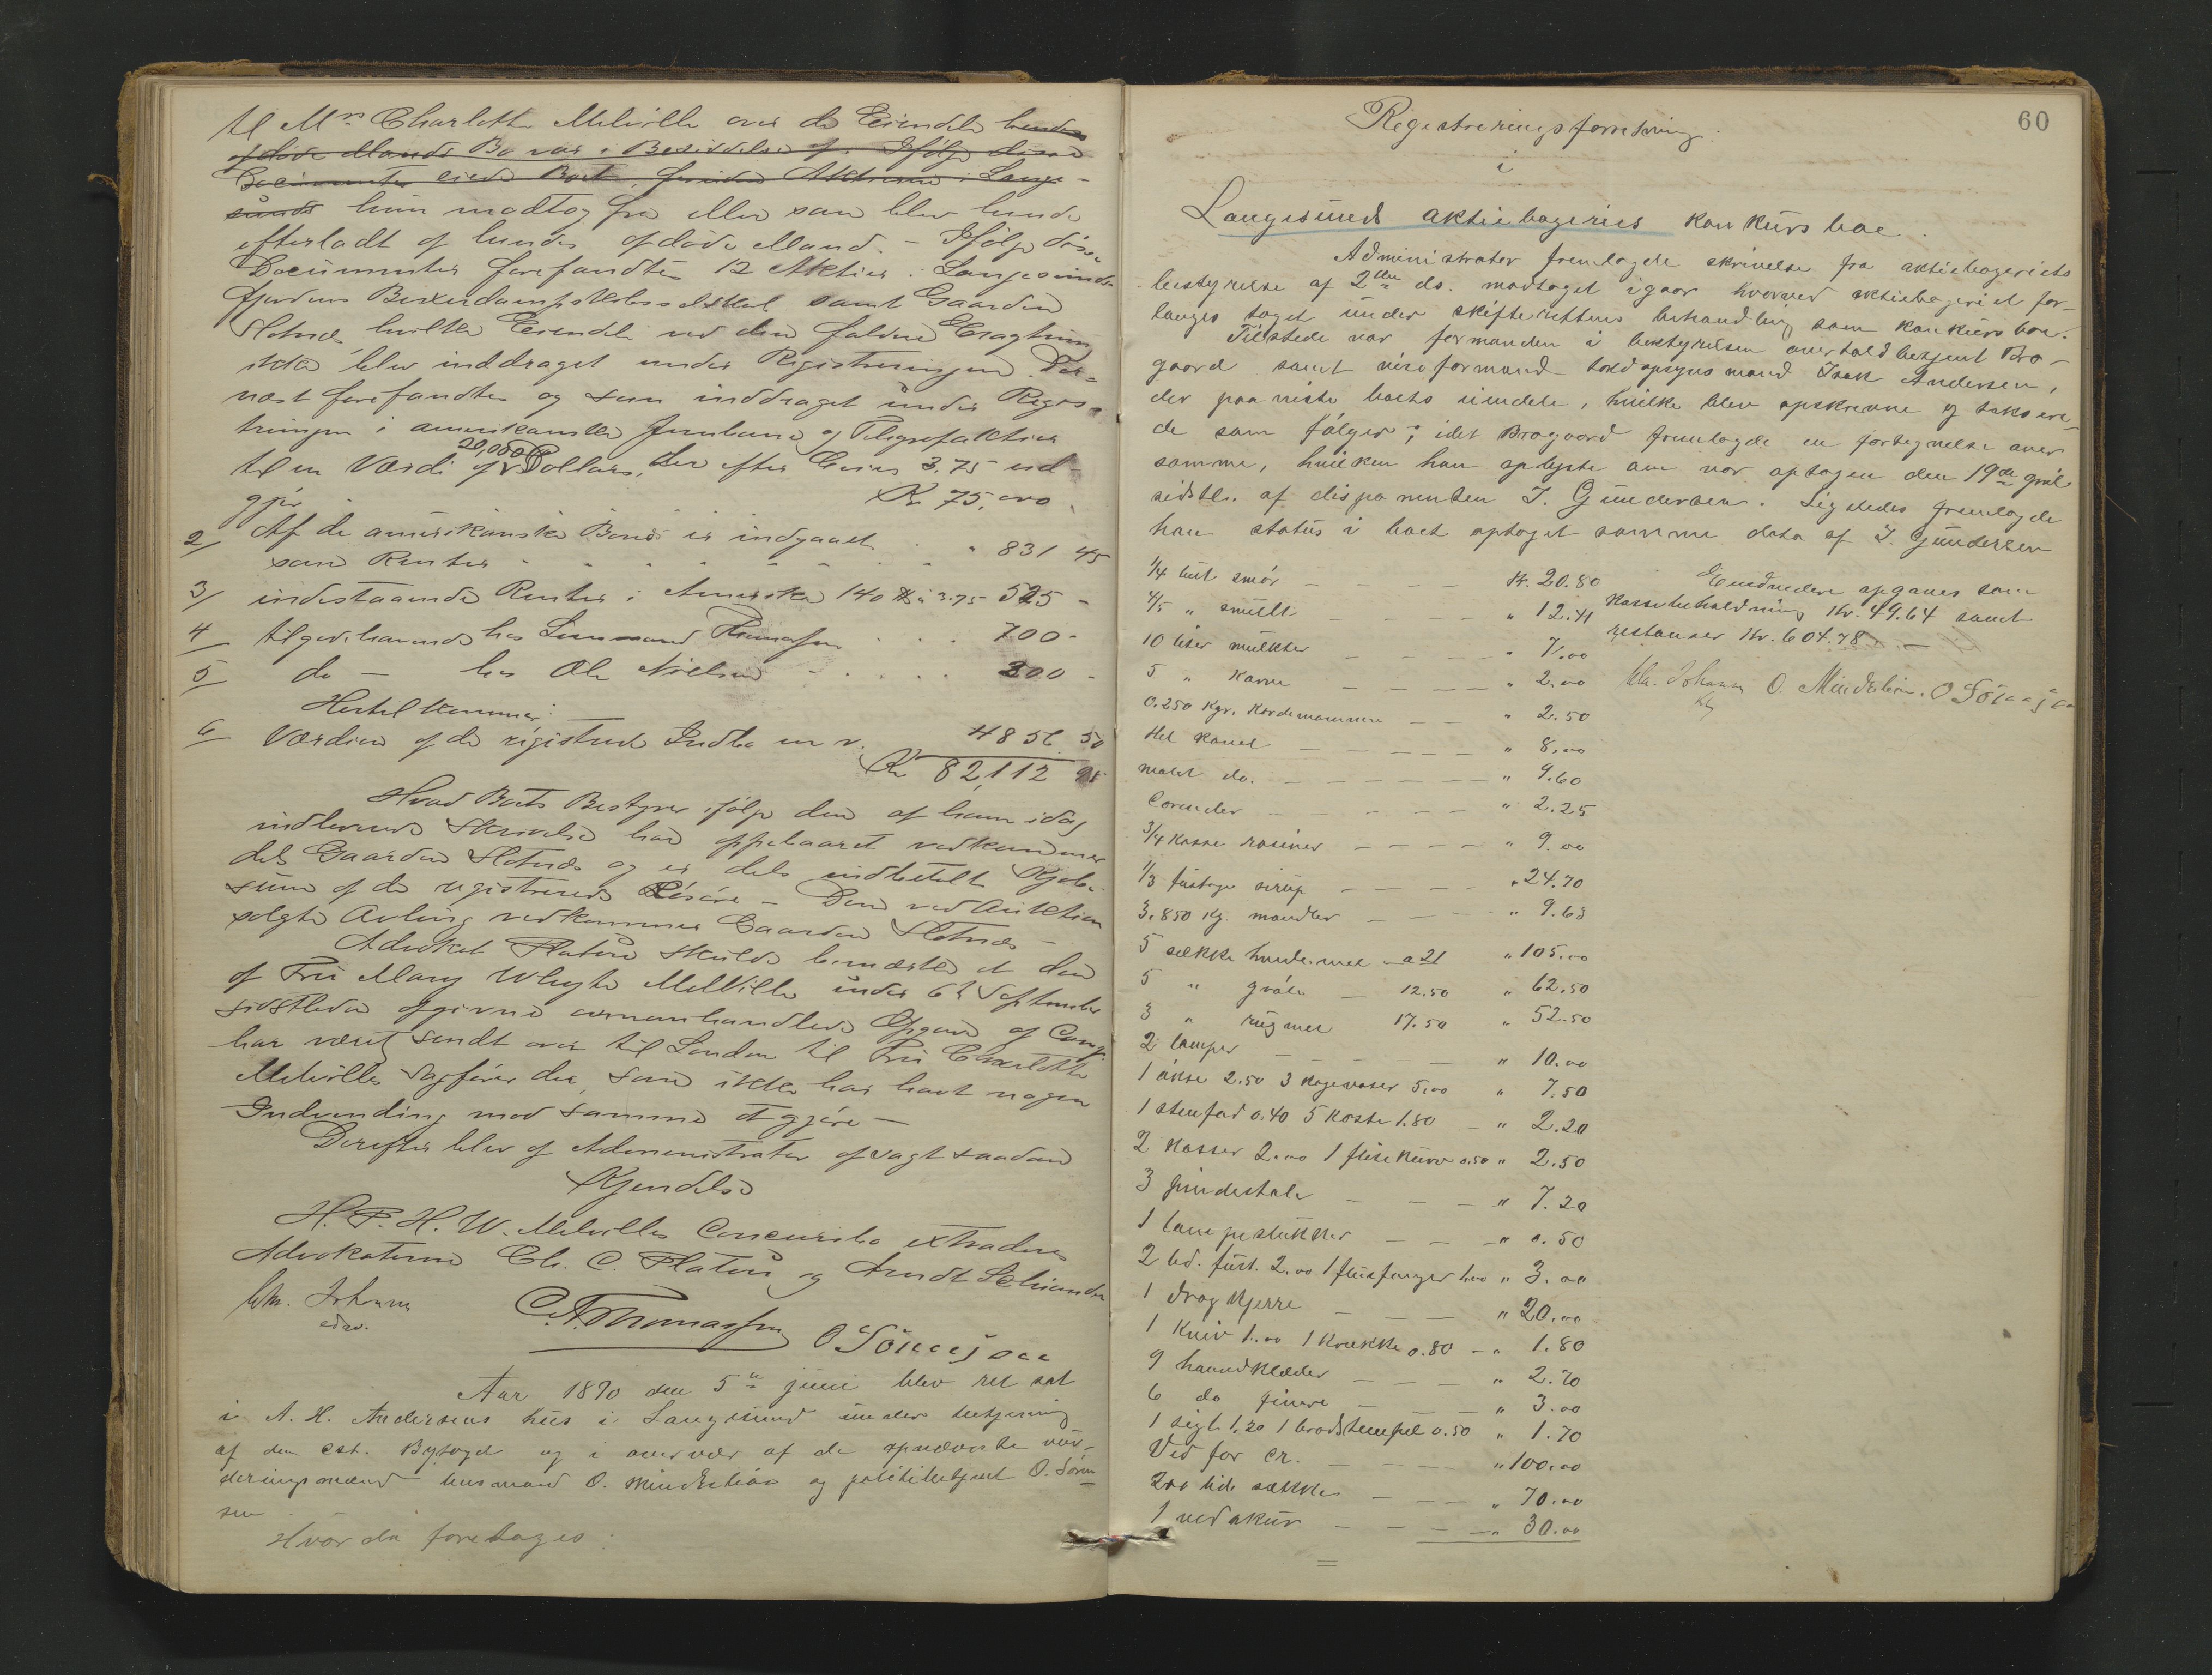 til Mrs Charlotte Melville over de Eiendele hendes
afdøde Mands Bo var i Besiddelse af. Ifølge disse
Documenter eiede Boet, foruden Aktierne i Lange-
sunds hun modtog fra eller som blev hende
efterladt af hendes afdøde Mand. - Ifølge disse
Documenter forefandtes 12 Aktier i Langesunds
fjordens Buxerdampskibsselskab samt Gaarden
Slotnæs hvilke Eiendele ved den faldne Eragtning
ikke blev inddraget under Registreringen. Der-
næst forefandtes og som inddraget under Regis-
treringen i amerikanske Jernbane og Telegrafaktier
til en Værdi af 20,000 Dollars, der efter Cours 3.75 ud-
gjør Kr 75,000
2/ Af de amerikanske Bonds er indgaaet
som Renter " 831 45
3/ indestaaende Renter i Amerika 140 $ à 3.75 525 -
4 tilgodehavende hos Thomassen 700 -
5 do - hos Ole Nielsen 200 -
Hertil kommer:
6 Værdien af de registrerede Indbo m. v. 4856 50
Kr 82,112 95
Hvad Boets Bestyrer ifølge den af ham idag
indleverede Skrivelse har oppebaaret vedkommer
dels Gaarden Slotnæs og er dels indbetalt Kjøbe-
sum af de registrerede Løsøre - Den ved Auktion
solgte Avling vedkommer Gaarden Slotnæs -
Advokat Platou skulde bemærke at den
af Fru Mary Whyte Melville under 6te September
sidstleden afgivne Opgave af
har været sendt over til London til Fru Charlotte
Melvilles Sagfører der, som ikke har havt nogen
Indvending mod samme at gjøre -
Derefter blev af Administrator afsagt saadan
Kjendelse
H. P. H. W. Melvilles Concursbo extraderes
Advokaterne Ch. C. Platou og Arndt Schiander
Chr. Johansen
C. A. Thomassen O Sörensen
Aar 1890 den 5te juni blev ret sat
i A. H. Andersens hus i Langesund under betjening
af den cst. Byfoged og i overvær af de opnævnte vur-
deringsmænd husmand O. Mindstebøe og politibetjent O. Sören
sen
Hvor da foretages:
60
Registreringsforretning
i
Langesunds aktiebageries konkursboe.
Administrator fremlagde skrivelse fra aktiebageriets
bestyrelse af 2den ds. modtaget igaar hvorved aktiebageriet for-
langes taget under skifterettens behandling som konkursboe.
Tilstede var formanden i bestyrelsen overtoldbetjent Bro-
gaard samt viseformand toldopsynsmand Isak Andersen,
der paaviste boets eiendele, hvilke blev opskrevne og taksere-
de som følger; idet Brogaard fremlagde en fortegnelse over
samme, hvilken han oplyste om var optagen den 19de april
sidstl. af disponenten J. Gundersen. Ligeledes fremlagde
han status i boet optaget samme dato af J. Gundersen
1/4 but. smör Kr. 20.80
4/5 " smult " 12.41
10 æsker " 7.00
5 " Karve " 2.00
0.250 Kgr. Kardemomme " 2.50
Hel Kanel " 8.00
malet do. " 9.60
Corender " 2.25
3/4 Kasse rosiner " 9.00
1/3 fustage sirup " 24.70
3.850 Kg. mandler " 9.63
5 sække hvedemel a 21 " 105.00
5 " gröpe 12.50 " 62.50
3 " rugmel 17.50 " 52.50
2 lamper " 10.00
1 økse 2.50 3 Kagevaser 5.00 " 7.50
1 stenfad 0.40 5 Koste 1.80 " 2.20
2 Kasser 2.00 1 flise Kurv 0.50 " 2.50
3 pindestole " 7.20
1 lampeslukker " 0.50
2 td. fust. 2.00 1 fluefanger 1.00 " 3.00
1 drag Kjerre " 20.00
1 Kniv 1.00 1 Krukke 0.80 " 1.80
9 haandklæder " 2.70
6 do finere " 3.00
1 sigt 1.20 1 brødstempel 0.50 " 1.70
Ved for cr. " 100.00
200 sække " 70.00
1 vedskur " 30.00
Endvidere opgaves som
Kassebeholdning Kr. 49.64 samt
restanser Kr. 604.78
Chr. Johansen O. Mindstebøe. O Sörensen